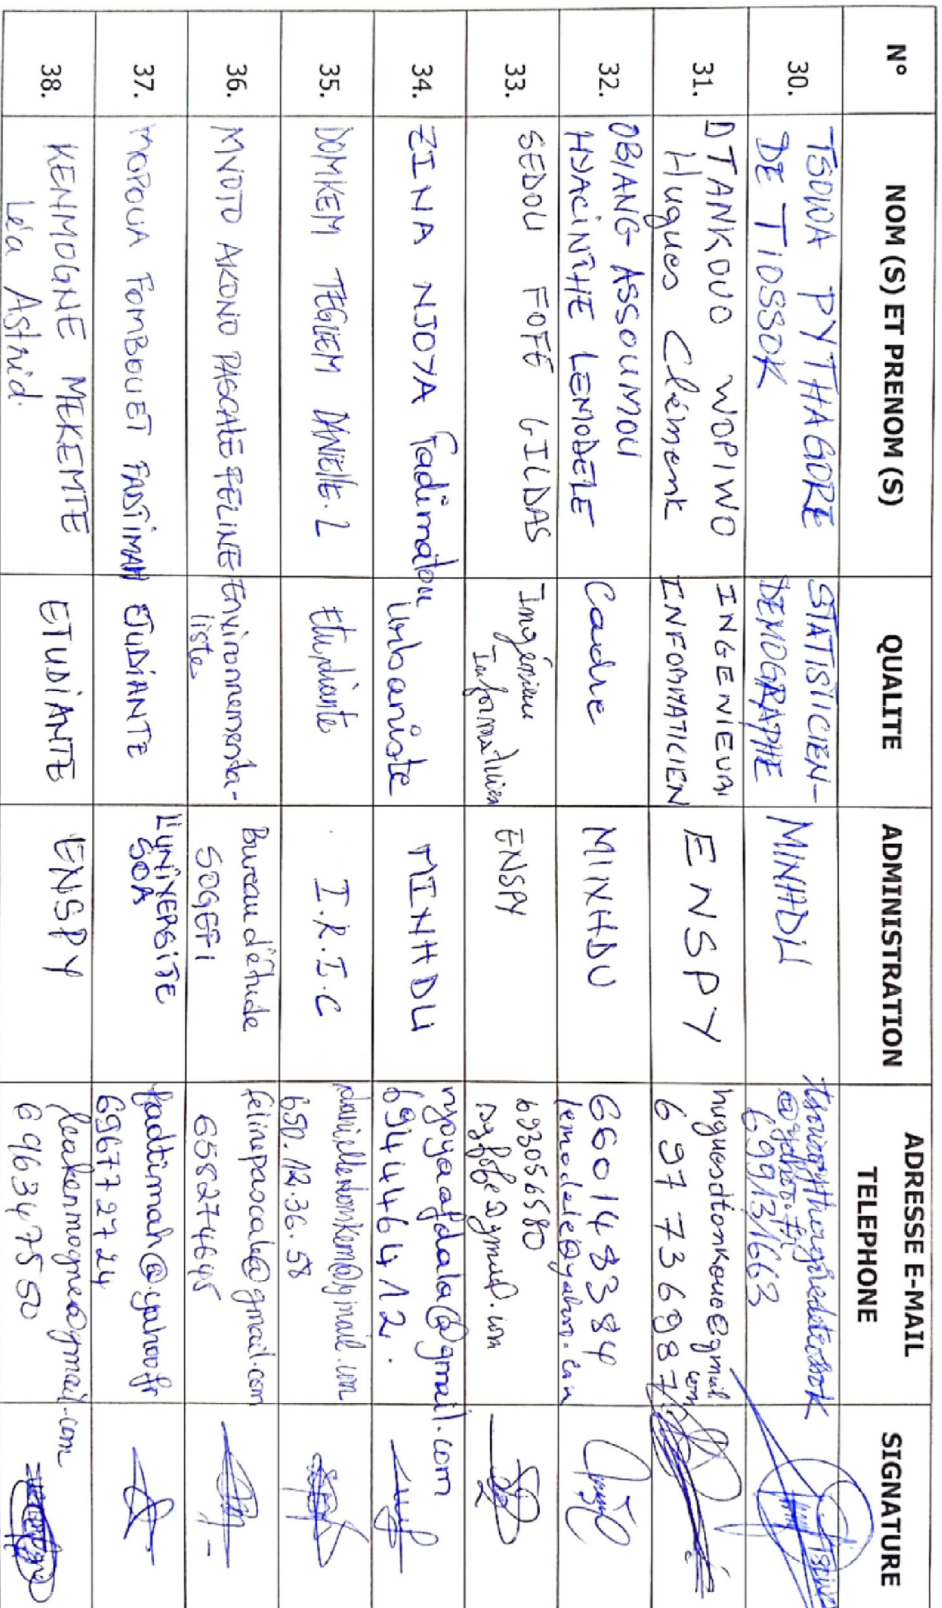 N° NOM (S) ET PRENOM (S) QUALITE ADMINISTRATION ADRESSE E-MAIL
TELEPHONE SIGNATURE
30. TSOWA PYTHAGORE
DE TIOSSOK
STATISTICIEN-
DEMOGRAPHE
MINHDU
@yahoo.fr
699131663
31. DTANKOUO WOPIWO
Hugues Clément
INGENIEUR
INFORMATICIEN
ENSPY
huguesdtonkouo@gmail
.com
697736987
32. OBIANG ASSOUMOU
HYACINTHE LEMODELE
Cadre
MINHDU
660148384
lemodele@yahoo.com
33. SEDOU FOFE GILDAS
Ingénieur
Informaticien
ENSPY
693056580
34. ZINA NJOYA Fadimatou
Urbaniste
MINHDU
njoyaafdala@gmail.com
694446412.
35. DOMKEM TEGUEM DANIELLE.L
Etudiante
I.R.I.C
danielledomkem@gmail.com
650.12.36.58
36. MVOTO AKONO PASCALE FELINE
Environnementa-
liste
Bureau d'étude
SOGEFI
felinepascale@gmail.com
658274645
37. MOPOUA FOMBOUET FADTIMAH
ETUDIANTE
L'UNIVERSITE
SOA
fadtimah@yahoo.fr
696772724
38. KENMOGNE MEKEMTE
Léa Astrid.
ETUDIANTE
ENSPY
leakenmogne@gmail.com
696347550